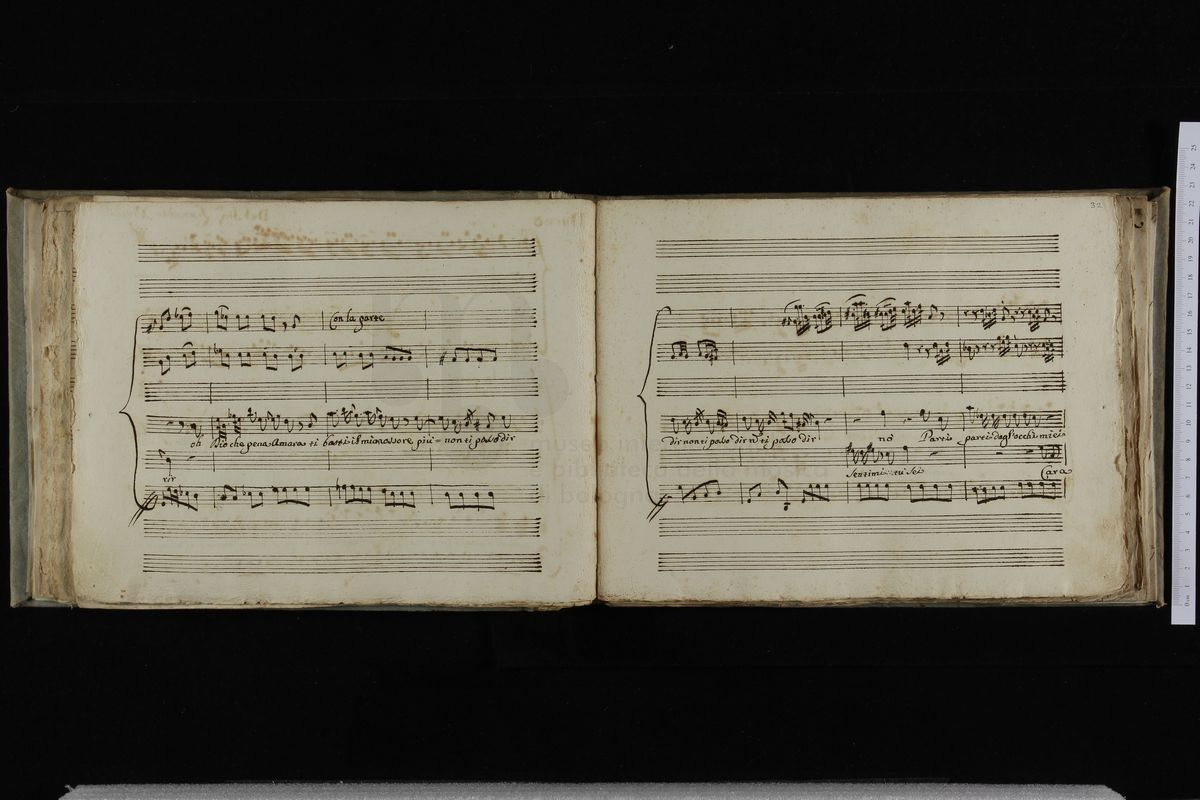 Con la parte
oh Dio che pena Amara ti basti il mio rossore più non ti posso dir
rir
32
dir non ti posso dir ñ ti posso dir no Parti parti dagl'occhi miei
Sentimi tu sei
Cara
museo int
biblioteca della musica
di bologna